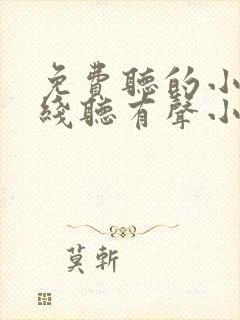 免費聽的小
綫聽有聲小
莫斬